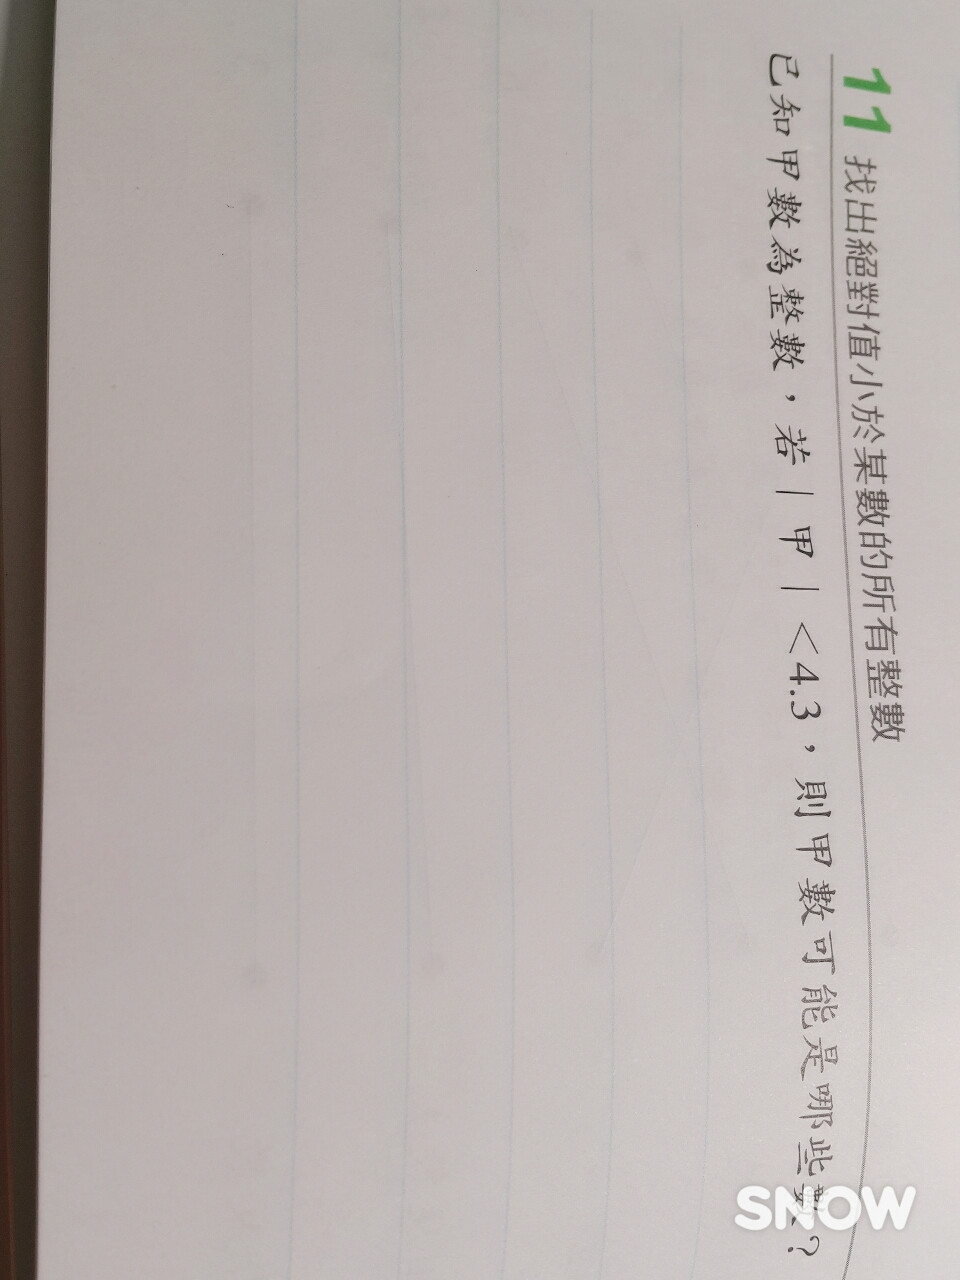 11 找出絕對值小於某數的所有整數
已知甲數為整數，若｜甲｜<4.3，則甲數可能是哪些數？
SNOW